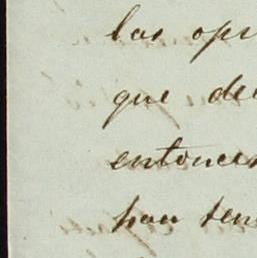 las opi
que de
entonces
han ten